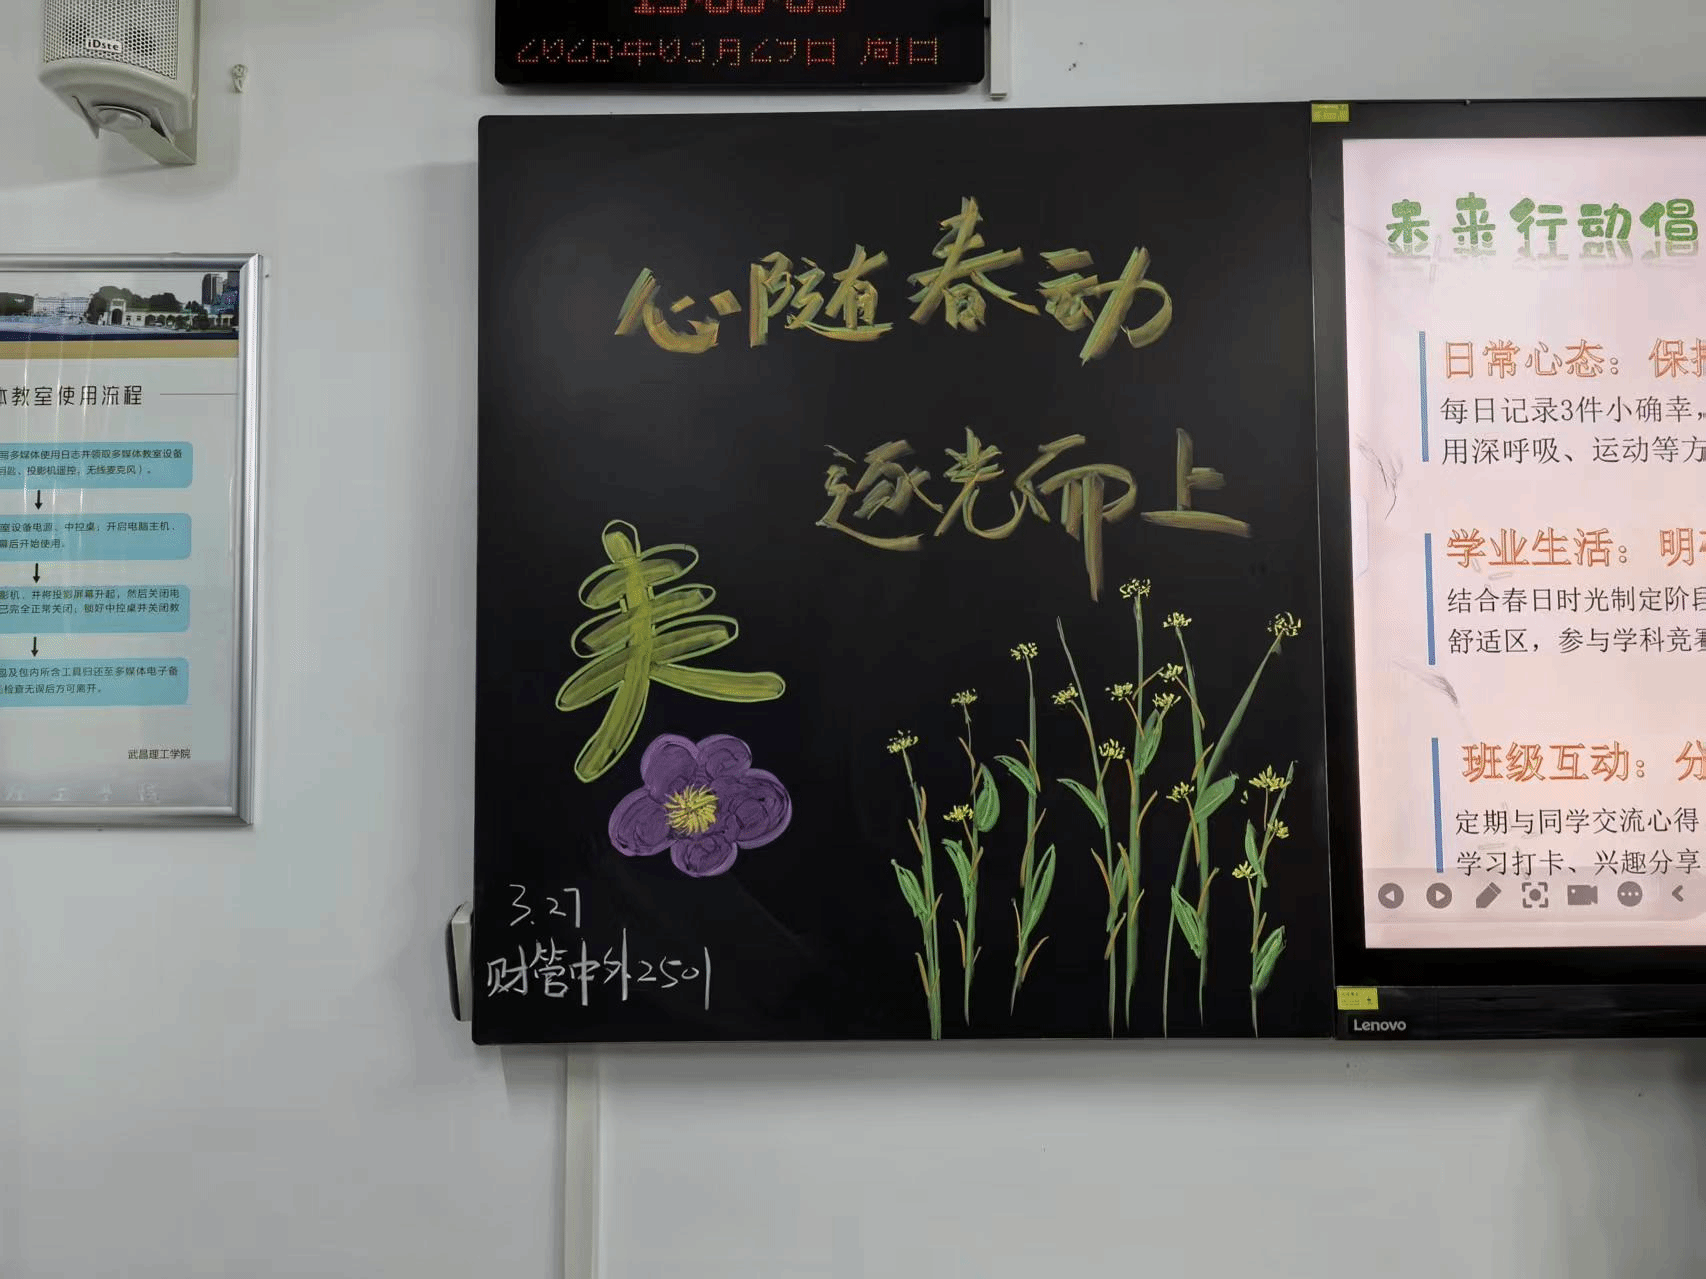 iDste
2026年03月29日 周日
心随春动
逐光而上
美
3.27
财管中外2501
体教室使用流程
写多媒体使用日志并领取多媒体教室设备
钥匙、投影机遥控，无线麦克风）。
室设备电源、中控桌；开启电脑主机、
幕后开始使用。
影机、并将投影屏幕升起，然后关闭电
已完全正常关闭，锁好中控桌并关闭教
包及包内所含工具归还至多媒体电子备
检查无误后方可离开。
武昌理工学院
未来行动倡
日常心态：保持
每日记录3件小确幸，
用深呼吸、运动等方
学业生活：明
结合春日时光制定阶段
舒适区，参与学科竞赛
班级互动：分
定期与同学交流心得
学习打卡、兴趣分享
Lenovo